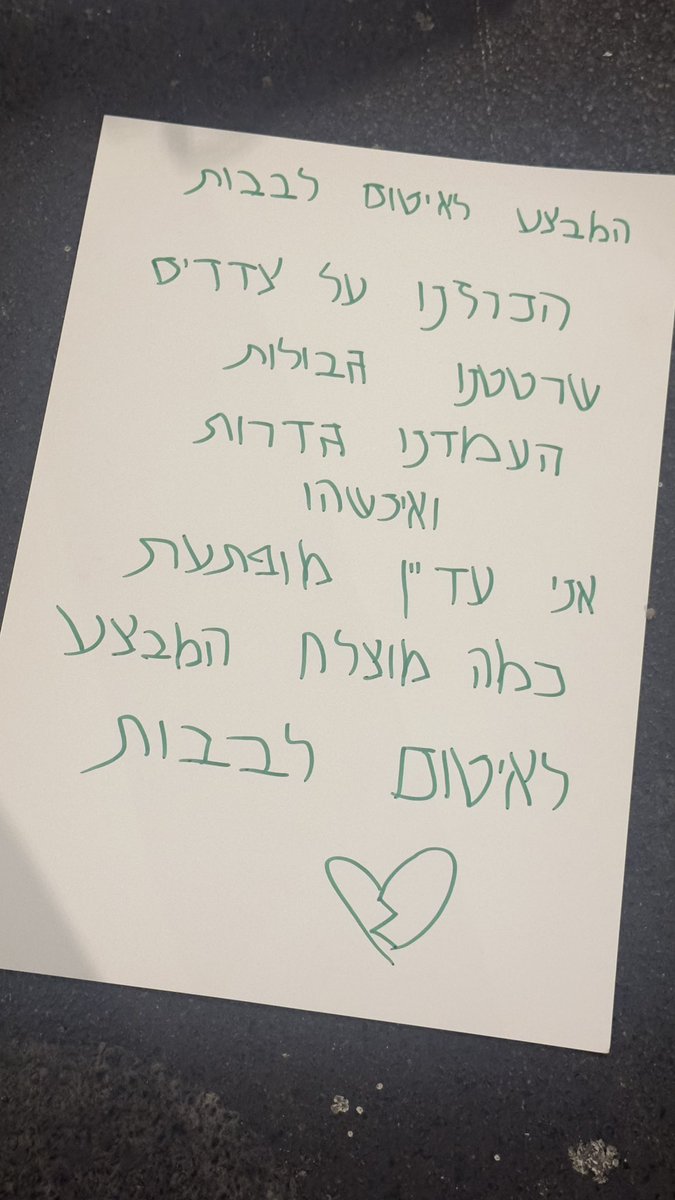 המבצע לאיטום לבבות
הכרזנו על צדדים
שרטטנו גבולות
העמדנו גדרות
ואיכשהו
אני עדיין מופתעת
כמה מוצלח המבצע
לאיטום לבבות